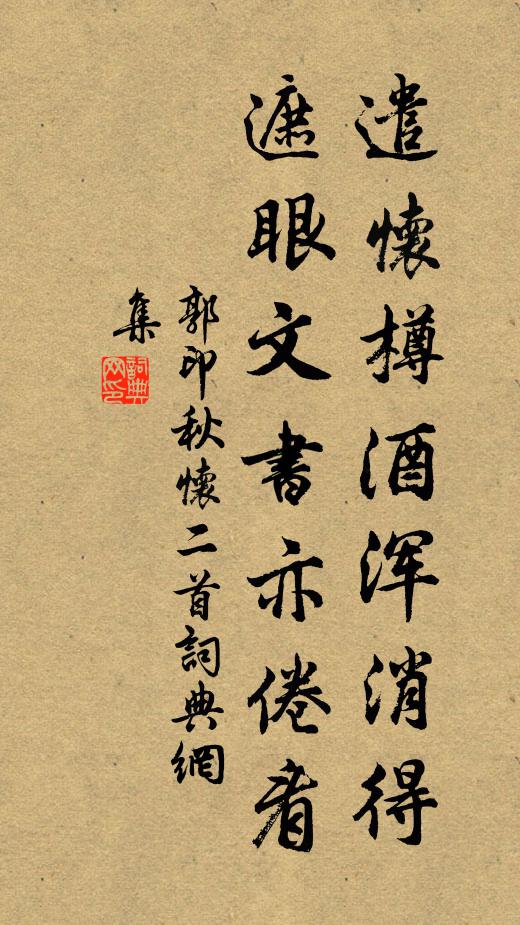 遣懷樽酒浑消得
遮眼文書亦倦看
郭印秋懷二首詞典網
集
詞典网印